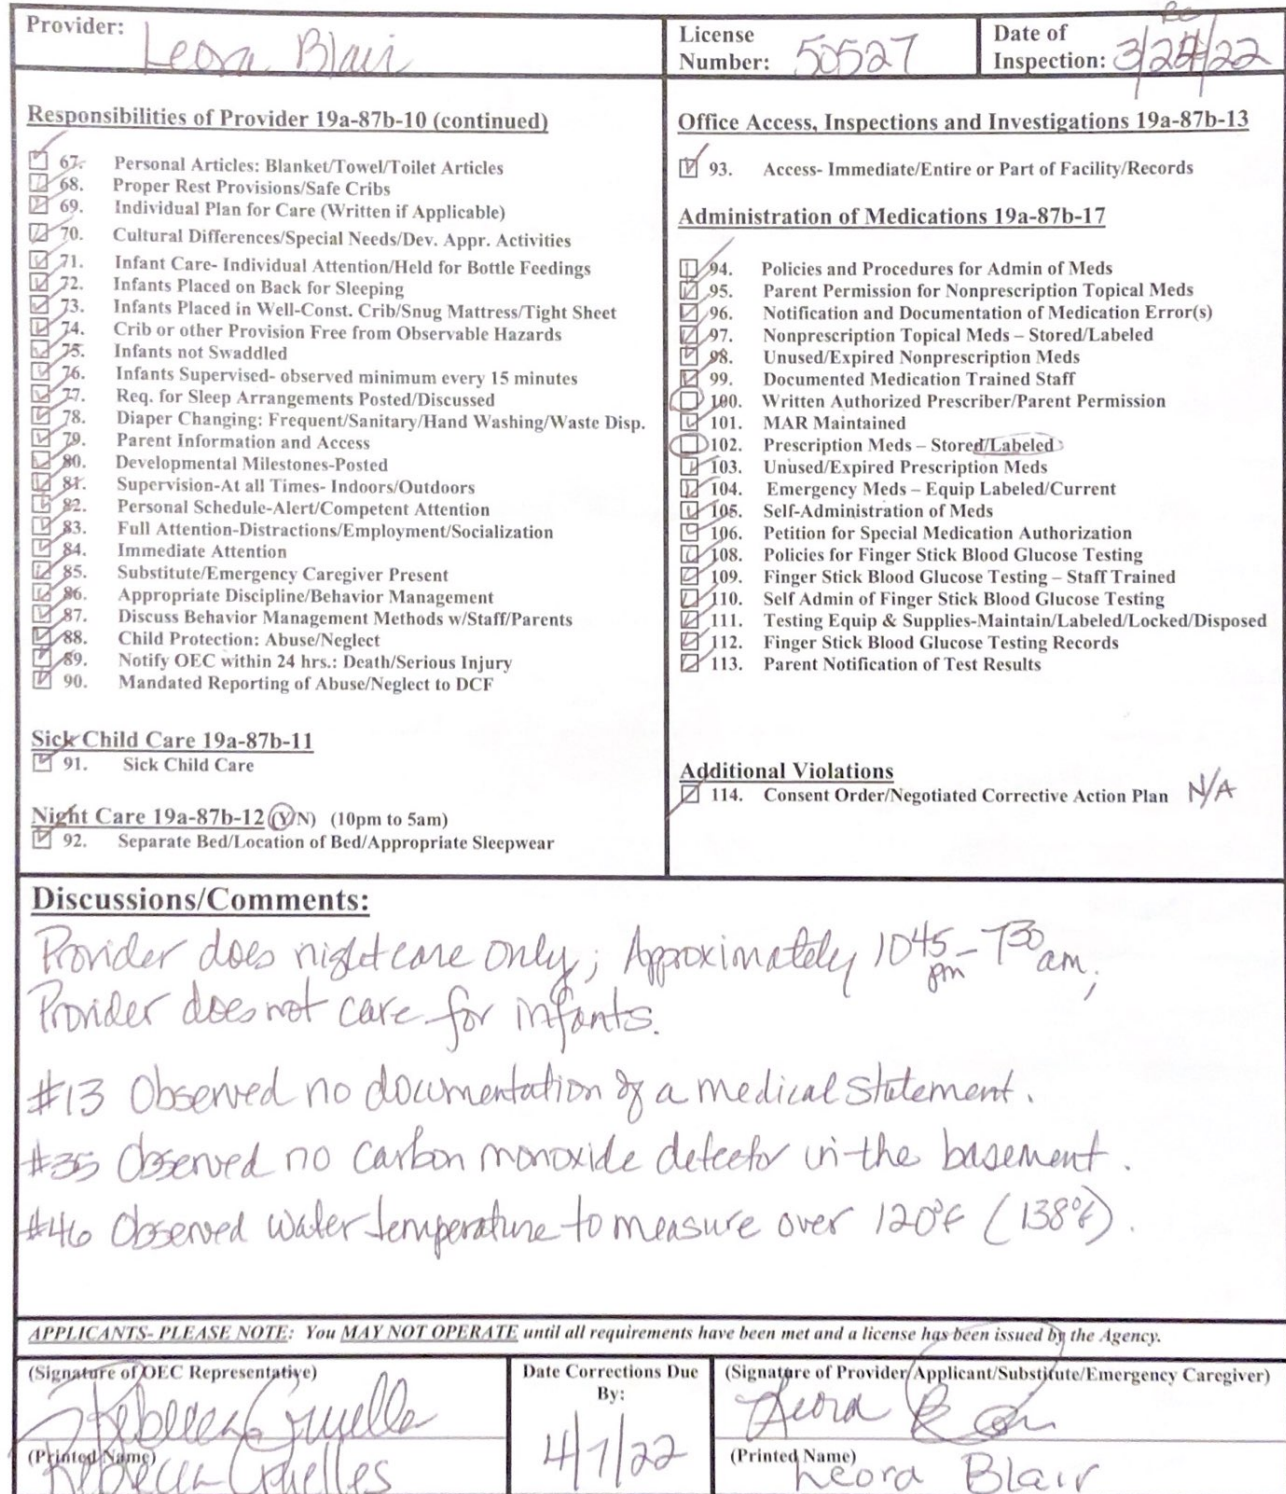 Provider: Leora Blair
License Number: 50527
Date of Inspection: 3/24/22
RC
Responsibilities of Provider 19a-87b-10 (continued)
67. Personal Articles: Blanket/Towel/Toilet Articles
68. Proper Rest Provisions/Safe Cribs
69. Individual Plan for Care (Written if Applicable)
70. Cultural Differences/Special Needs/Dev. Appr. Activities
71. Infant Care- Individual Attention/Held for Bottle Feedings
72. Infants Placed on Back for Sleeping
73. Infants Placed in Well-Const. Crib/Snug Mattress/Tight Sheet
74. Crib or other Provision Free from Observable Hazards
75. Infants not Swaddled
76. Infants Supervised- observed minimum every 15 minutes
77. Req. for Sleep Arrangements Posted/Discussed
78. Diaper Changing: Frequent/Sanitary/Hand Washing/Waste Disp.
79. Parent Information and Access
80. Developmental Milestones-Posted
81. Supervision-At all Times- Indoors/Outdoors
82. Personal Schedule-Alert/Competent Attention
83. Full Attention-Distractions/Employment/Socialization
84. Immediate Attention
85. Substitute/Emergency Caregiver Present
86. Appropriate Discipline/Behavior Management
87. Discuss Behavior Management Methods w/Staff/Parents
88. Child Protection: Abuse/Neglect
89. Notify OEC within 24 hrs.: Death/Serious Injury
90. Mandated Reporting of Abuse/Neglect to DCF
Sick Child Care 19a-87b-11
91. Sick Child Care
Night Care 19a-87b-12 (Y/N) (10pm to 5am)
92. Separate Bed/Location of Bed/Appropriate Sleepwear
Office Access, Inspections and Investigations 19a-87b-13
93. Access- Immediate/Entire or Part of Facility/Records
Administration of Medications 19a-87b-17
94. Policies and Procedures for Admin of Meds
95. Parent Permission for Nonprescription Topical Meds
96. Notification and Documentation of Medication Error(s)
97. Nonprescription Topical Meds – Stored/Labeled
98. Unused/Expired Nonprescription Meds
99. Documented Medication Trained Staff
100. Written Authorized Prescriber/Parent Permission
101. MAR Maintained
102. Prescription Meds – Stored/Labeled
103. Unused/Expired Prescription Meds
104. Emergency Meds – Equip Labeled/Current
105. Self-Administration of Meds
106. Petition for Special Medication Authorization
108. Policies for Finger Stick Blood Glucose Testing
109. Finger Stick Blood Glucose Testing – Staff Trained
110. Self Admin of Finger Stick Blood Glucose Testing
111. Testing Equip & Supplies-Maintain/Labeled/Locked/Disposed
112. Finger Stick Blood Glucose Testing Records
113. Parent Notification of Test Results
Additional Violations
114. Consent Order/Negotiated Corrective Action Plan N/A
Discussions/Comments:
Provider does night care only; Approximately 10 45 pm - 7 30 am;
Provider does not care for infants.
#13 Observed no documentation of a medical statement.
#35 Observed no carbon monoxide detector in the basement.
#46 Observed water temperature to measure over 120°F (138°F).
APPLICANTS- PLEASE NOTE: You MAY NOT OPERATE until all requirements have been met and a license has been issued by the Agency.
(Signature of OEC Representative)
(Printed Name)
Date Corrections Due By:
4/7/22
(Signature of Provider/Applicant/Substitute/Emergency Caregiver)
Leora Blair
(Printed Name)
Leora Blair